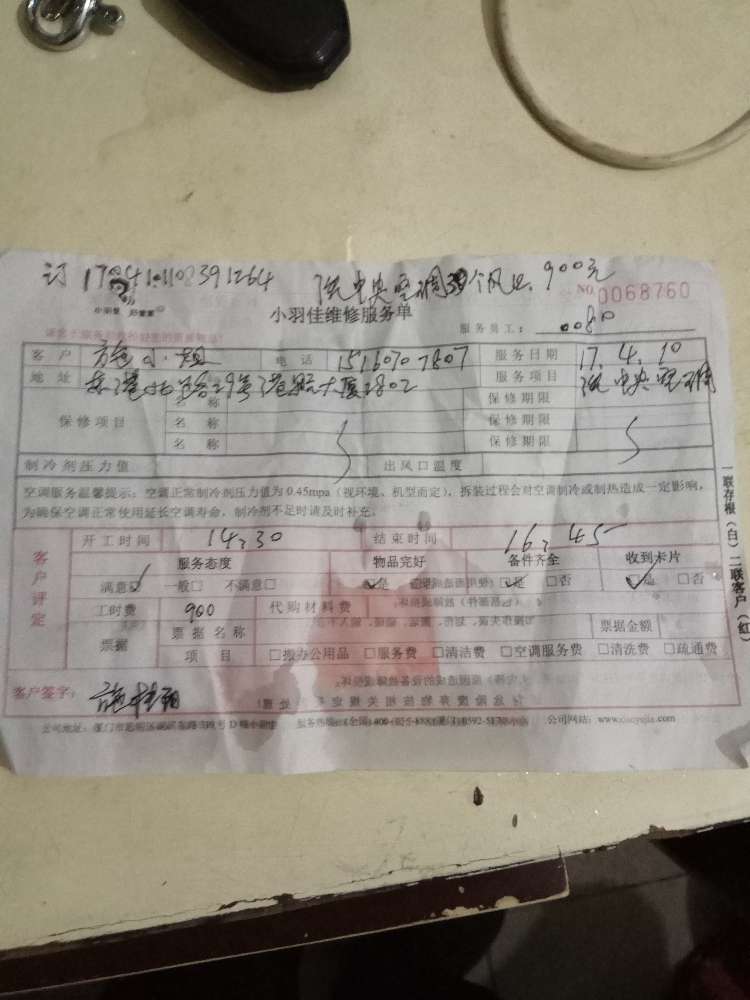 订 17041108391264 洗中央空调 个风口. 900元
NO. 0068760
小羽佳 好管家
小羽佳维修服务单
服务员工: 0080
客户 施小姐 电话 15160707807 服务日期 17.4.10
地址 东港北路29号港航大厦2802 服务项目 洗中央空调
名称 保修期限
保修项目 名称 保修期限
名称 保修期限
制冷剂压力值 出风口温度
空调服务温馨提示:空调正常制冷剂压力值为0.45mpa(视环境、机型而定),拆装过程会对空调制冷或制热造成一定影响,
为确保空调正常使用延长空调寿命,制冷剂不足时请及时补充。
客户评定
开工时间 14:30 结束时间 16:45
服务态度 物品完好 备件齐全 收到卡片
满意☑ 一般□ 不满意□ ☑是 □否 ☑是 □否 ☑是 □否
工时费 900 代购材料费
票据 票据名称 票据金额
项目 □搬办公用品 □服务费 □清洁费 □空调服务费 □清洗费 □疏通费
客户签字:
公司网站:www.xiaoyujia.com
一联存根(白)二联客户(红)